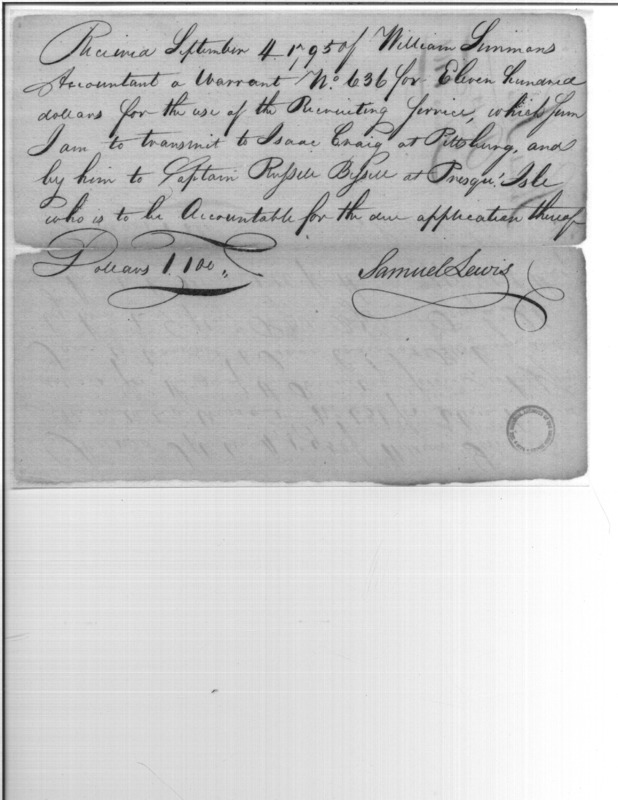 Received September 4. 1795 of William Simmons
Accountant a Warrant No. 636 for Eleven hundred
dollars for the use of the Recruiting Service, which sum
I am to transmit to Isaac Craig at Pittsburg, and
by him to Captain Russell Bissell at Presqu' Isle
who is to be Accountable for the due application thereof
Dollars 1.100,,
Samuel Lewis